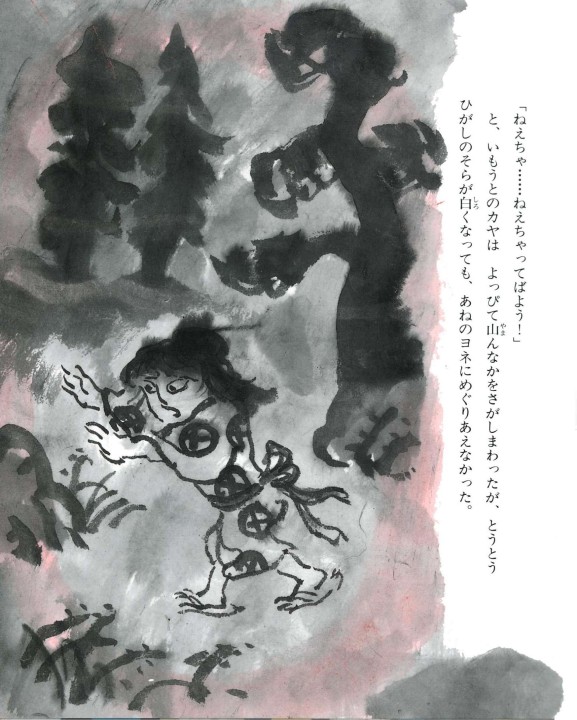 「ねえちゃ……ねえちゃってばよう！」
と、いもうとのカヤは　よっぴて山んなかをさがしまわったが、とうとう
ひがしのそらが白くなっても、あねのヨネにめぐりあえなかった。
やま
しろ